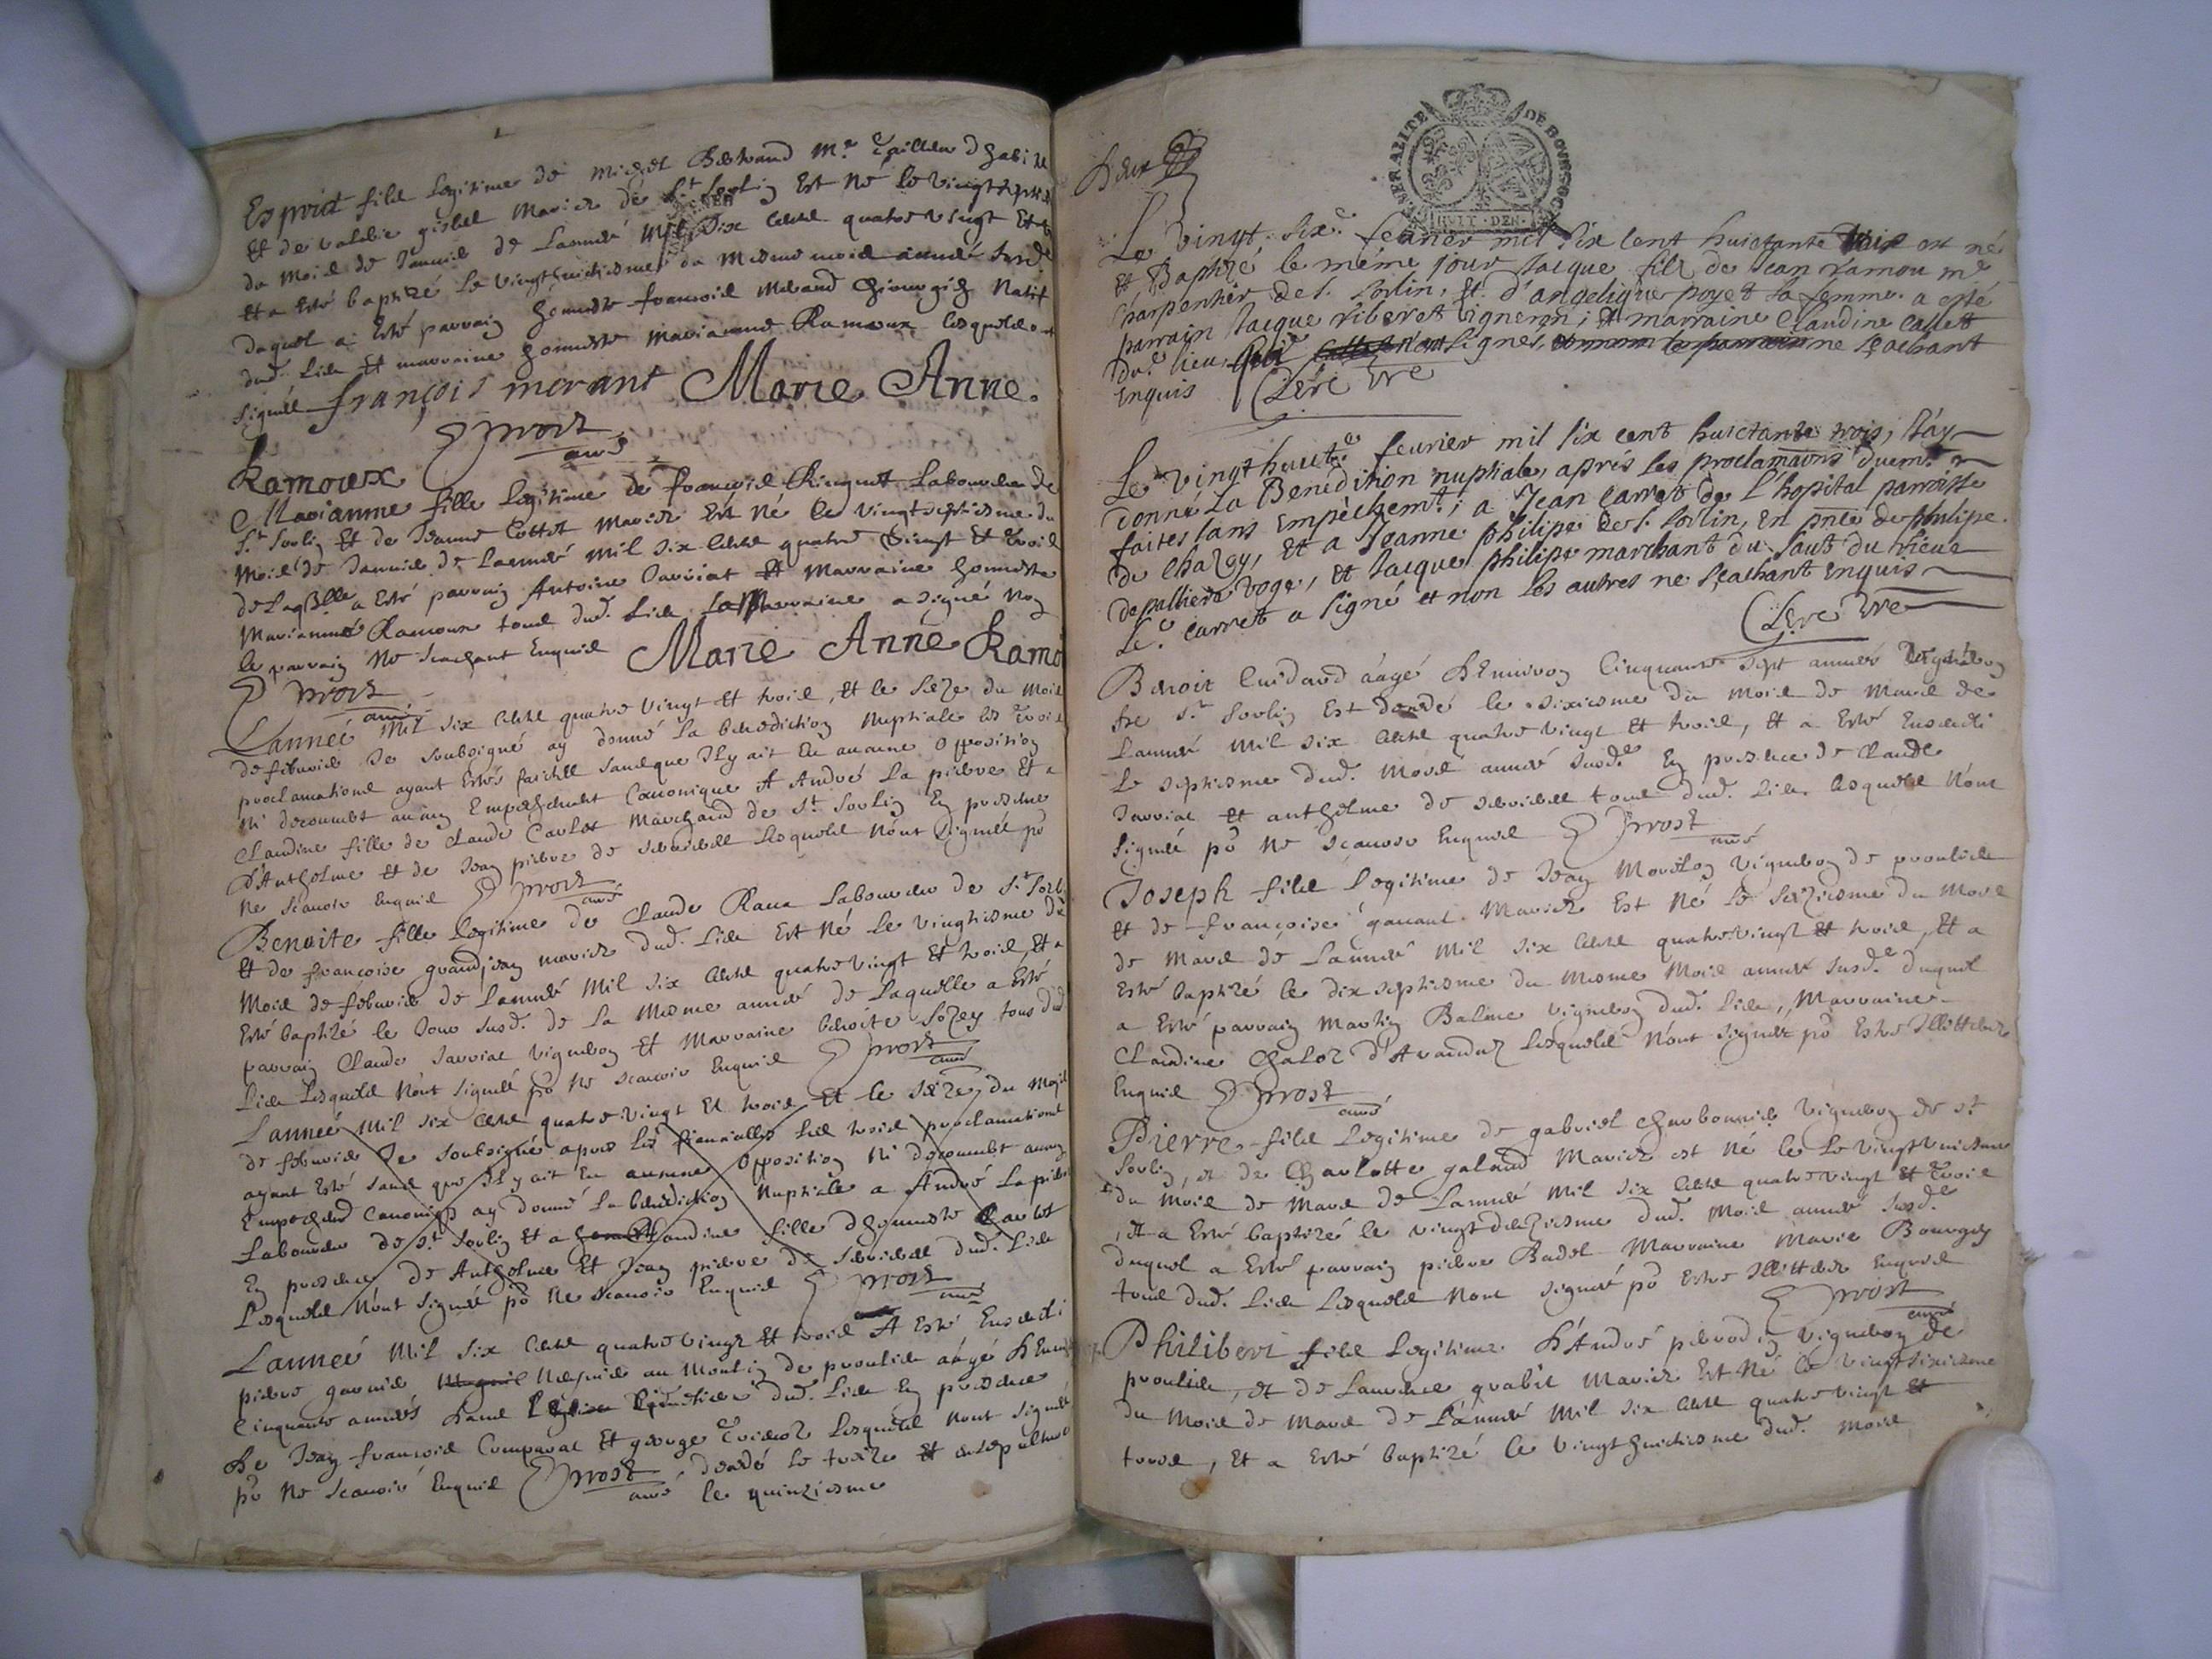 Esprit filz legitime de Michel Bertrand Me Tailleur d habitz
et de valerie gisbel Mariez de St Sorlin Est Né le vingtseptie
du Mois de Janvier de Lannée Mil Six centz quatre vingt Et
et a Esté baptizé le vingthuictiesme du Mesme mois année susde
duquel a Esté parrain honneste francois Morand Chirurgien Natif
dud. Lieu Et marraine honneste Marianne Ramoux lesquelz ont
signéz françois morant Marie Anne
Ramoux Prost curé
Marianne fille legitime de francois Ringuet Laboureur de
St Sorlin Et de Jeanne Cottet Mariez Est Né le vingtseptiesme du
Mois de Janvier de Lannée Mil six centz quatre vingt Et trois
de Laqlle a Esté parrain Antoine Janviat Et Marraine honneste
Marianne Ramoux tous dud. Lieu la Marraine a signé non
le parrain Ne scachant Enquis Marie Anne Ramo
Prost curé
Lannée Mil six centz quatre vingt Et trois, Et le seize du Mois
de febvrier Je soubsigné ay donné la benediction Nuptiale les trois
proclamations ayant Estés faictes sans que Il y ait Eu aucune opposition
Ni decouvert aucun Empeschement Canonique A André La pierre Et a
Claudine fille de Claude Carlot Marchand de St Sorlin En presence
d'Anthelme et de Jean pierre de lesquelz N'ont signéz po
Ne scavoir Enquis Prost curé
Benoite fille legitime de Claude Ravu Laboureur de St Sorlin
et de francoise grandjean mariez dud. Lieu Est Né le vingtiesme du
Mois de febvrier de Lannée Mil six centz quatre vingt Et trois, Et a
Esté baptizé le Jour susd. de La Mesme année de Laquelle a Esté
parrain Claude Janviat vigneron Et Marraine benoite tous dud.
Lieu Lesquelz N'ont signéz po Ne scavoir Enquis Prost curé
Lannée Mil six centz quatre vingt Et trois Et le seize du Mois
de febvrier Je soubsigné apres les fiancialles les trois proclamations
ayant Esté sans que Il y ait Eu aucune opposition Ni decouvert aucun
Empeschemt Canonique ay donné La benediction Nuptiale a André La pierre
Laboureur de St Sorlin Et a Claudine fille d honneste Carlot
En presence de Anthelme Et Jean pierre de dud. Lieu
Lesquelz N'ont signéz po Ne scavoir Enquis Prost curé
Lannée Mil six centz quatre vingt Et trois A Esté Enseveli
pierre garnier Meunier au Moulin de proulieu aâgé d'Environ
Cinquante années dans L'Eglise dud. Lieu En presence
de Jean francois Comparat Et george lesquelz N'ont signéz
po Ne scavoir Enquis Prost curé decedé le treize et ensepulturé
le quinziesme
deux
GENERALITE DE BOURGOGNE
HUIT DEN.
Le vingt six.e feurier mil six cent huictante trois est né
et Baptizé le méme jour Jacque filz de Jean ramou me
Charpentier de S. Sorlin, et d'angelique poyet sa femme. a esté
parrain Jacque riberet vigneron; et marraine Claudine Callet
dud. lieu signer, ne sçachant
enquis Clerc Vre
Le vingt huict.e feurier mil six cent huictante trois, J'ay
donné la Benediction nuptiale, aprés les proclamaõns duemt
faites sans empéchemt; a Jean Carret de l'hopital parroisse
de Chazey, et a Jeanne philipe de S. Sorlin, en pnce de philipe
depalliere voge, et Jacque philipe marchant du Saut du rieux
Le.d carret a signé et non les autres ne sçachant enquis
Clerc Vre
Benoit Cuidard aâgé d'Environ Cinquante sept années vigneron
de St Sorlin Est decedé le sixiesme du Mois de Mars de
Lannée Mil six centz quatre vingt Et trois, Et a Esté Enseveli
Le septiesme dud. Mois année susd.e En presence de Claude
Janviat Et anthelme de tous dud. Lieu lesquelz N'ont
signéz po Ne scavoir Enquis Prost curé
Joseph filz legitime de Jean Morelon vigneron de proulieu
et de francoise gavant Mariez Est Né le seiziesme du Mois
de Mars de Lannée Mil six centz quatre vingt Et trois, Et a
Esté baptizé le dix septiesme du Mesme Mois année susd.e duquel
a Esté parrain Martin Balme vigneron dud. Lieu, Marraine
Claudine Chaloz d'Arandaz Lesquelz N'ont signéz po Estre Illitterez
Enquis Prost curé
Pierre filz Legitime de gabriel Charbonnier vigneron de St
Sorlin, et de Charlotte galand Mariez est Né le Le vingt uniesme
du Mois de Mars de Lannée Mil six centz quatre vingt Et trois
, Et a Esté baptizé le vingt deuziesme dud. Mois année susd.e
duquel a Esté parrain pierre Badel Marraine Marie Bourgey
tous dud. Lieu Lesquelz N'ont signéz po Estre Illitterez Enquis
Prost curé
Philibert filz Legitime d'André pierrodin vigneron de
proulieu, et de Laurence grabit Mariez Est Né le vingt sixiesme
du Mois de Mars de Lannée Mil six centz quatre vingt Et
trois, Et a Esté baptizé le vingt huictiesme dud. Mois